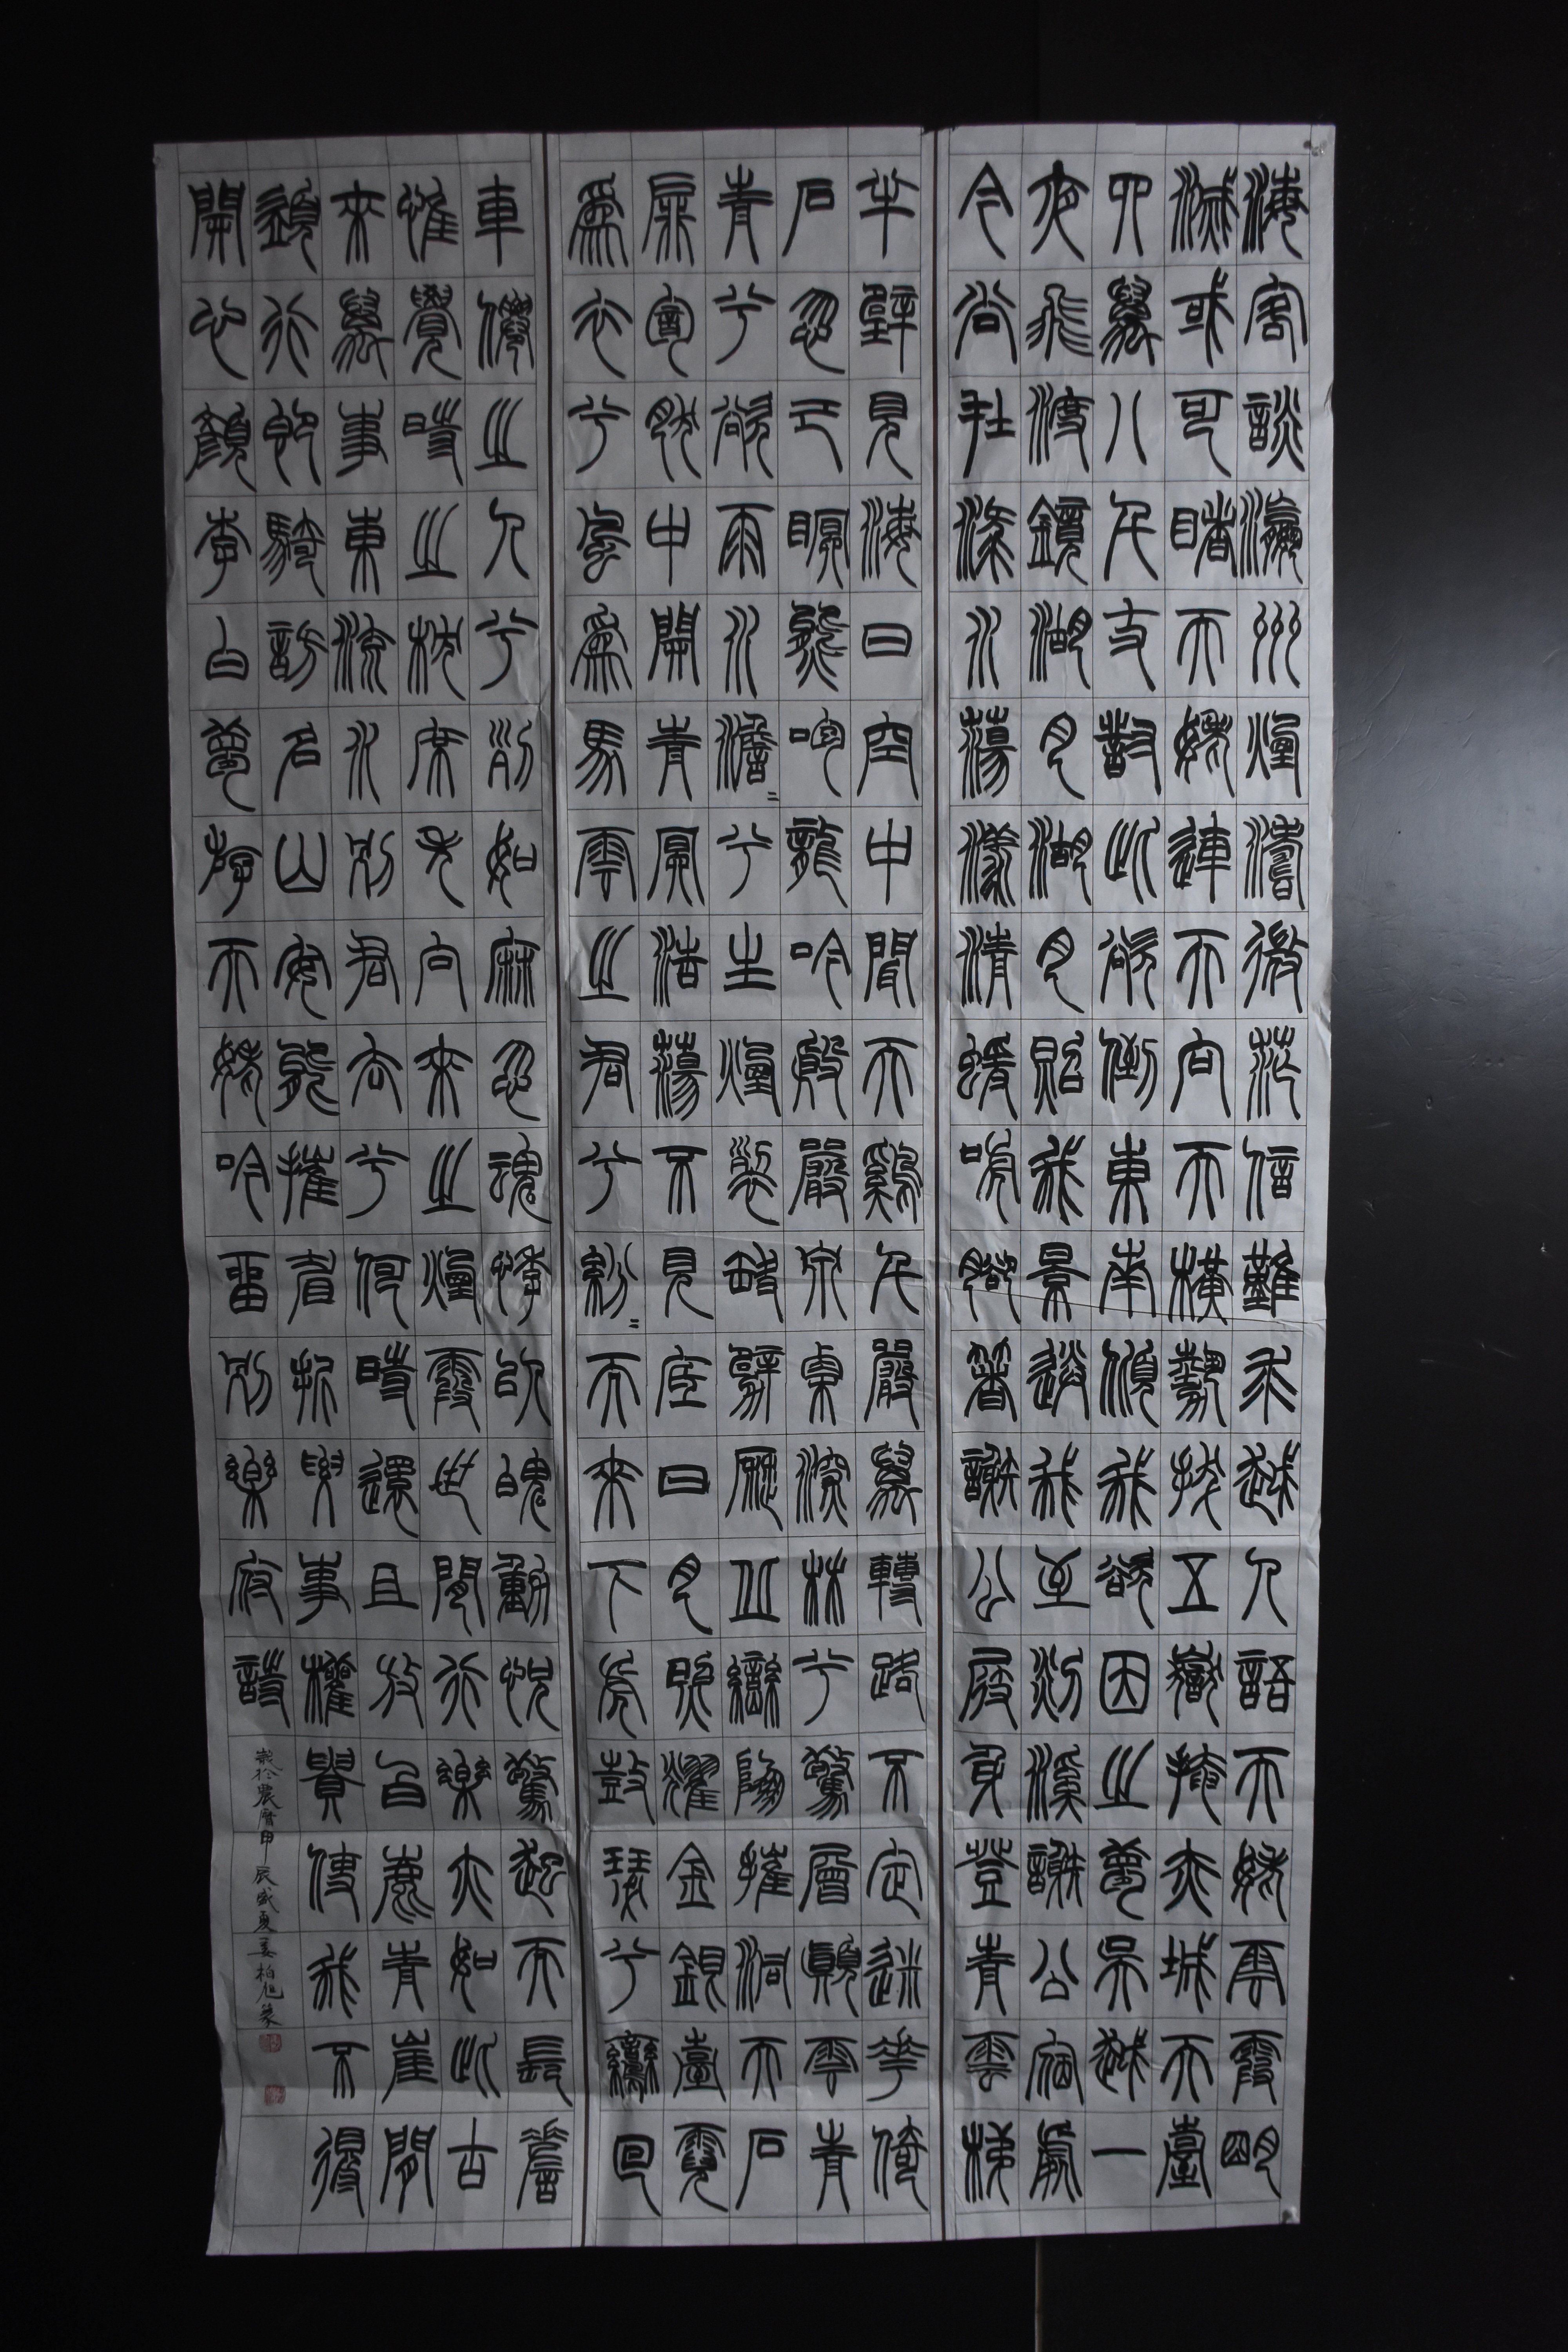 海客談瀛州煙濤微茫信難求越人語天姥雲霞明
滅或可睹天姥連天向天橫勢拔五嶽掩赤城天臺
四萬八千丈對此欲倒東南傾我欲因之夢吳越一
夜飛渡鏡湖月湖月照我景送我至剡溪謝公宿處
今尚在淥水蕩漾清猿啼腳著謝公屐身登青雲梯
半壁見海日空中聞天雞千巖萬轉路不定迷花倚
石忽已暝熊咆龍吟殷巖泉栗深林兮驚層顛雲青
青兮欲雨水澹〻兮生煙裂缺劈歷丘巒崩摧洞天石
扉訇然中開青冥浩蕩不見底日月照耀金銀臺霓
爲衣兮風爲馬雲之君兮紛〻而來下虎鼓瑟兮鸞回
車僊之人兮列如麻忽魂悸以魄動怳驚起而長嗟
惟覺時之枕席失向來之煙霞世間行樂亦如此古
來萬事東流水別君去兮何時還且放白鹿青崖間
須行即騎訪名山安能摧眉折腰事權貴使我不得
開心顏李白夢游天姥吟留別樂府詩
歲於農曆甲辰盛夏姜柏旭篆